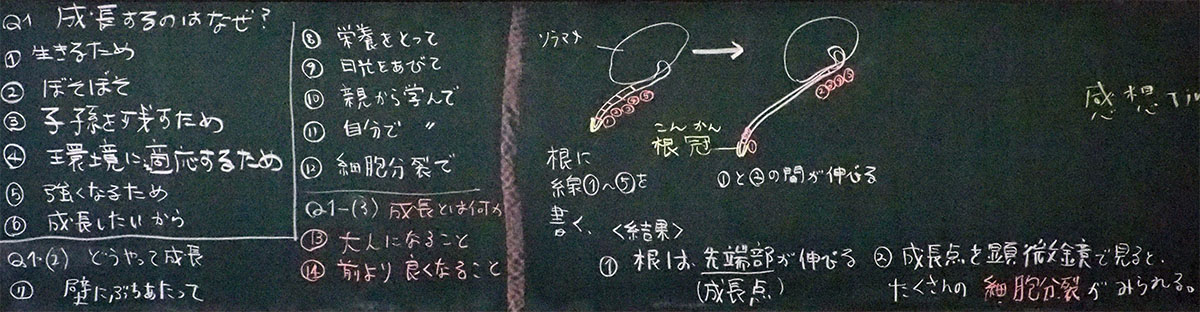 Q1 成長するのはなぜ?
① 生きるため
② ぼそぼそ
③ 子孫を残すため
④ 環境に適応するため
⑤ 強くなるため
⑥ 成長したいから
Q1-(2) どうやって成長
⑦ 壁にぶちあたって
⑧ 栄養をとって
⑨ 日光をあびて
⑩ 親から学んで
⑪ 自分で 〃
⑫ 細胞分裂で
Q1-(3) 成長とは何か
⑬ 大人になること
⑭ 前より良くなること
ソラマメ
①②③④⑤
②③④⑤
①
こんかん
根冠
根に
線①~⑤を
書く、
①と②の間が伸びる
<結果>
① 根は、先端部が伸びる
(成長点)
② 成長点を顕微鏡で見ると、
たくさんの細胞分裂がみられる。
感想